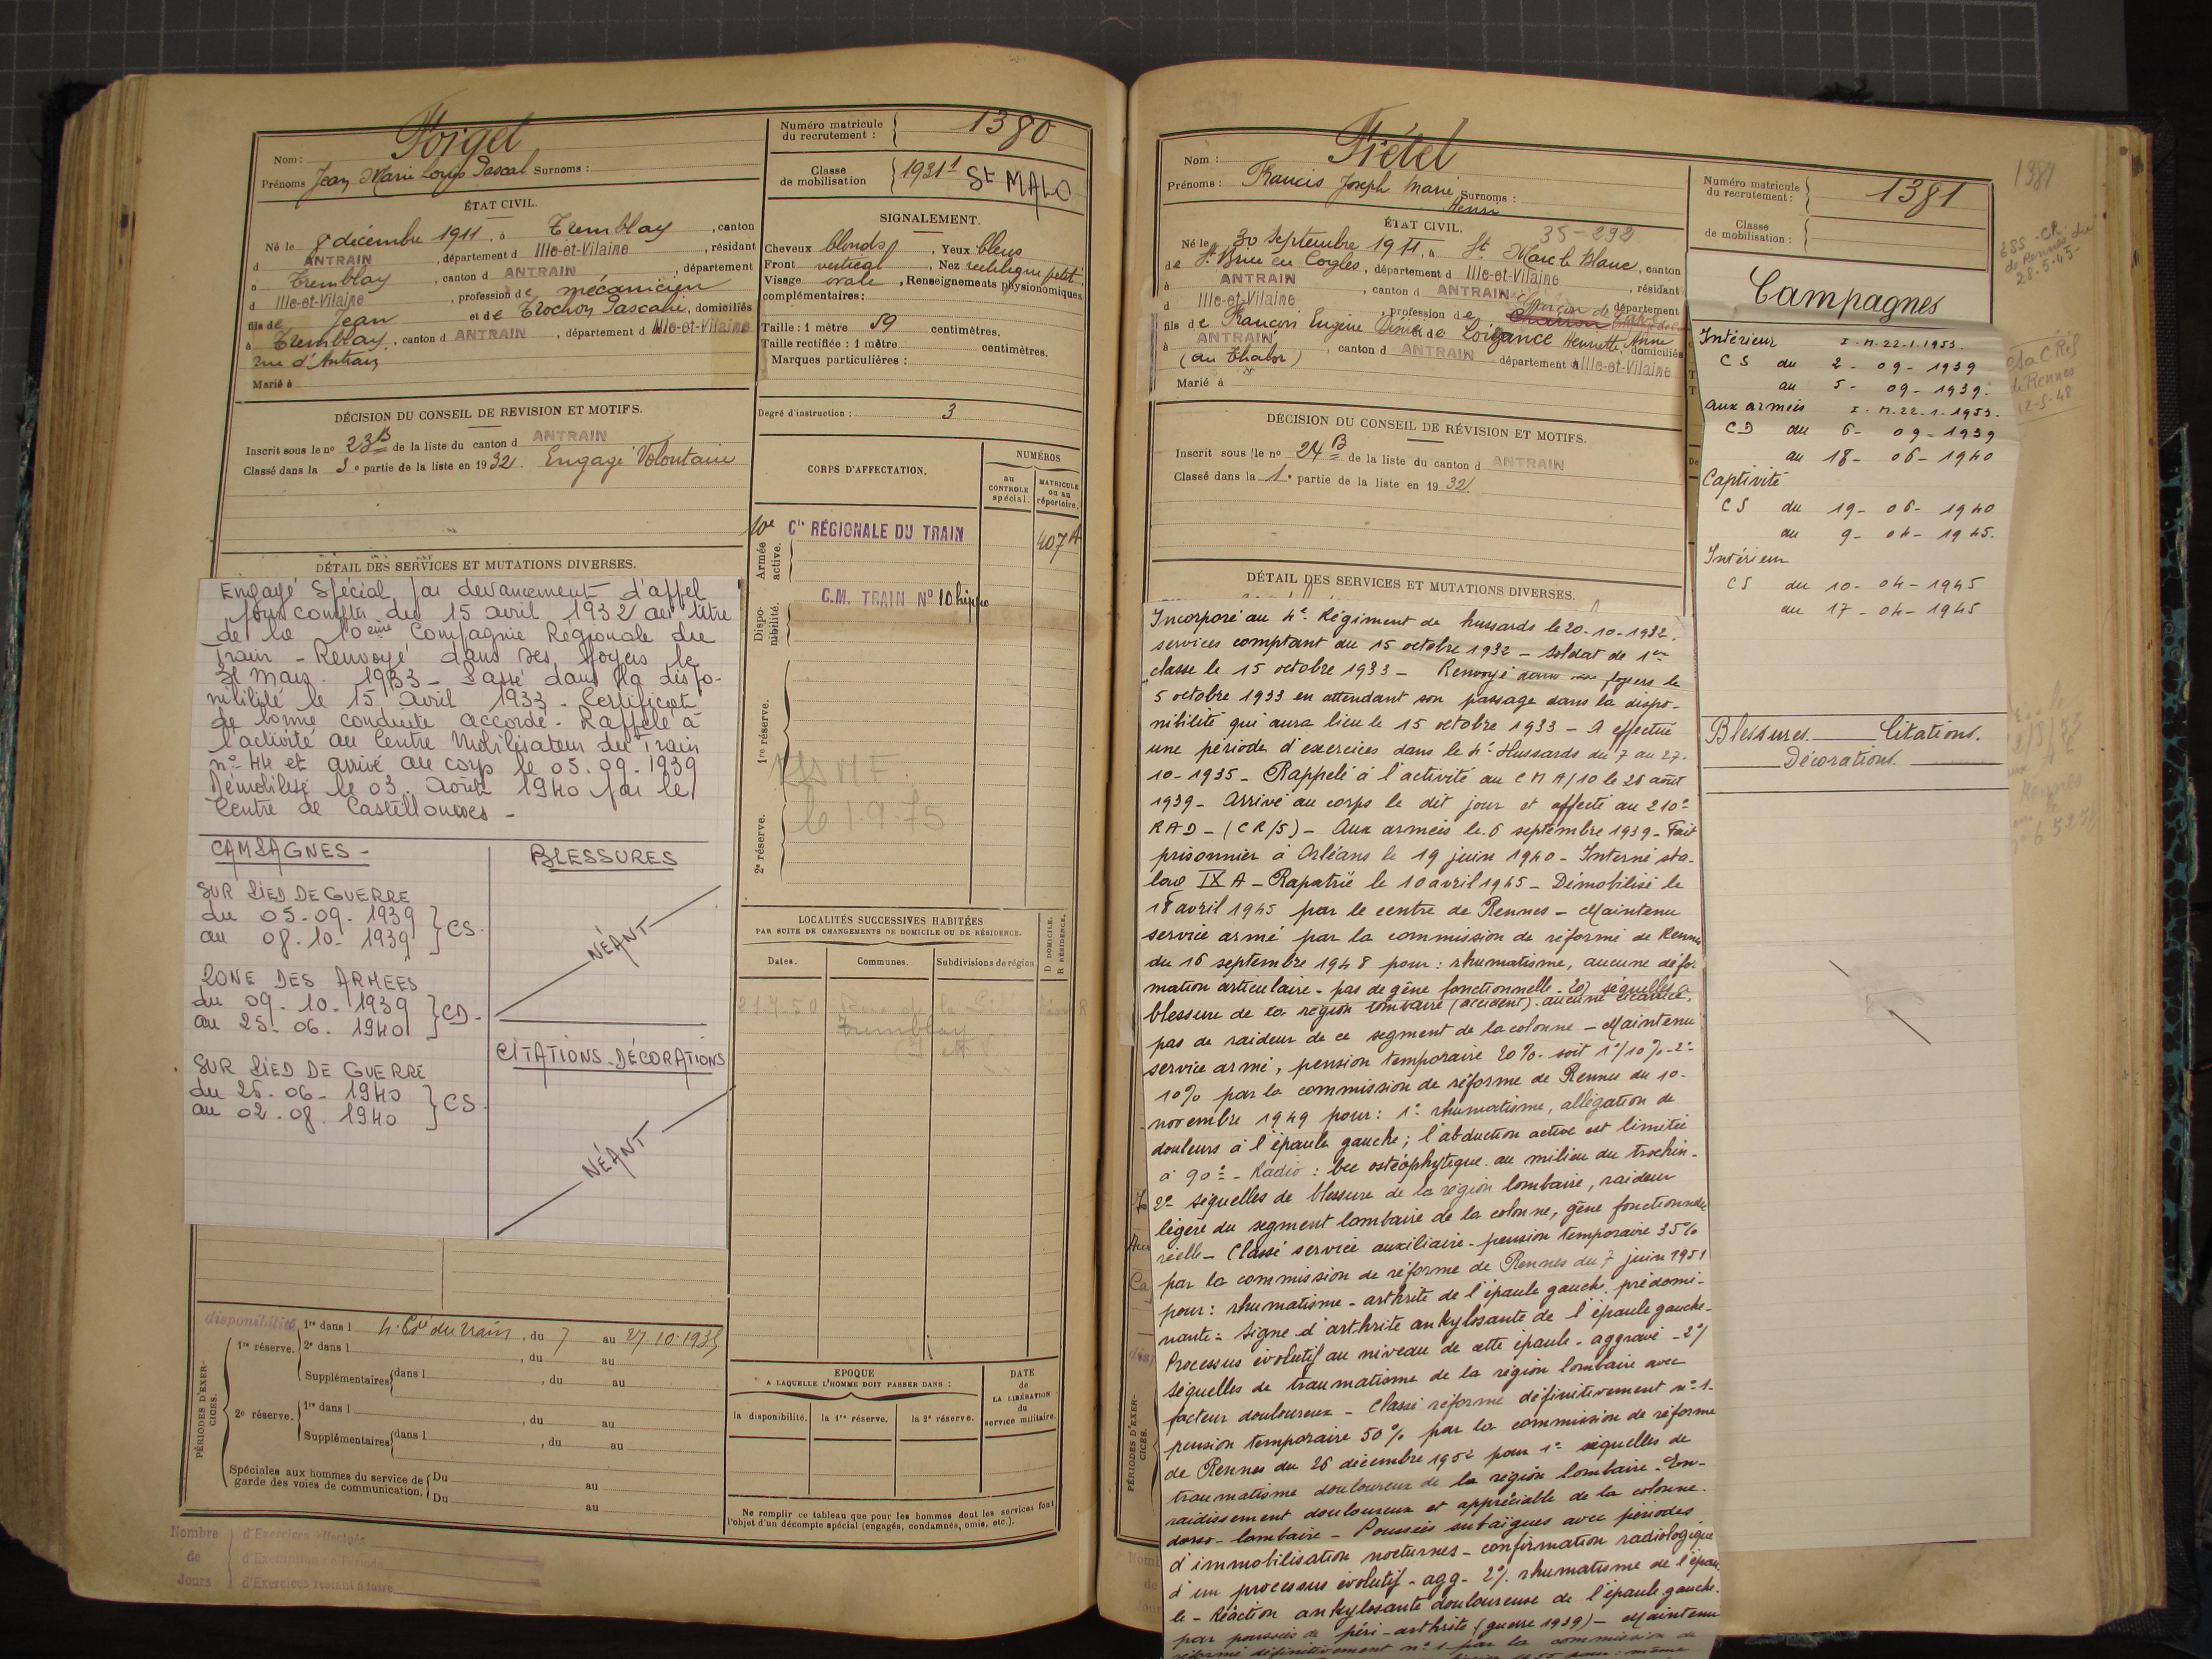 Nom : Forget
Prénoms Jean Marie Louis Pascal Surnoms :
ÉTAT CIVIL.
Né le 8 décembre 1911, à Tremblay, canton
d ANTRAIN, département d Ille-et-Vilaine, résidant
à Tremblay, canton d ANTRAIN, département
d Ille-et-Vilaine, profession de mécanicien
fils de Jean et de Trochon Pascaline, domiciliés
à Tremblay, canton d ANTRAIN, département d Ille-et-Vilaine
rue d'Antrain
Marié à
DÉCISION DU CONSEIL DE REVISION ET MOTIFS.
Inscrit sous le no 23 B de la liste du canton d ANTRAIN
Classé dans la 3e partie de la liste en 1932. Engagé Volontaire
DÉTAIL DES SERVICES ET MUTATIONS DIVERSES.
Engagé Spécial par devancement d'appel
pour compter du 15 avril 1932 au titre
de la 10ème Compagnie Régionale du
Train - Renvoyé dans ses foyers le
31 Mars 1933 - Passé dans la dispo-
nibilité le 15 avril 1933 - Certificat
de bonne conduite accordé - Rappelé à
l'activité au Centre Mobilisateur du Train
n° 44 et arrivé au corps le 05.09.1939
Démobilisé le 03 Août 1940 par le
Centre de Castellounes -
CAMPAGNES -
SUR PIED DE GUERRE
du 05-09-1939
au 08.10-1939 } CS.
ZONE DES ARMEES
du 09-10-1939
au 25-06-1940 } CD -
SUR PIED DE GUERRE
du 26-06-1940
au 02.08.1940 } CS.
BLESSURES
NÉANT
CITATIONS-DÉCORATIONS
NÉANT
PÉRIODES D'EXERCICES.
disponibilité
1re réserve. 1re dans l 4. Cie du train, du 7 au 27.10.1935
2e dans l , du au
Supplémentaires dans l , du au
2e réserve. 1re dans l , du au
Supplémentaires dans l , du au
Spéciales aux hommes du service de
garde des voies de communication. Du au
Du au
Nombre de Jours
d'Exercices effectués
d'Exemption de Période
d'Exercices restant à faire
Numéro matricule
du recrutement : 1380
Classe
de mobilisation 1931 1 St MALO
SIGNALEMENT.
Cheveux blonds, Yeux bleus
Front vertical, Nez rectiligne petit
Visage ovale, Renseignements physionomiques
complémentaires :
Taille : 1 mètre 59 centimètres.
Taille rectifiée : 1 mètre centimètres.
Marques particulières :
Degré d'instruction : 3
CORPS D'AFFECTATION.
NUMÉROS
au CONTROLE spécial.
MATRICULE ou au répertoire.
Armée active.
10e Cie RÉGIONALE DU TRAIN 407 A
Disponibilité.
C.M. TRAIN N° 10 hippo
1re réserve.
2e réserve.
le 1.9.75
LOCALITÉS SUCCESSIVES HABITÉES
PAR SUITE DE CHANGEMENTS DE DOMICILE OU DE RÉSIDENCE.
D DOMICILE.
R RÉSIDENCE.
Dates. Communes. Subdivisions de région
Tremblay
EPOQUE
A LAQUELLE L'HOMME DOIT PASSER DANS :
la disponibilité. la 1re réserve. la 2e réserve.
DATE
de
LA LIBÉRATION
du
service militaire.
Ne remplir ce tableau que pour les hommes dont les services font
l'objet d'un décompte spécial (engagés, condamnés, omis, etc.).
Nom : Fretel
Prénoms : Francis Joseph Marie Surnoms :
Henri
ÉTAT CIVIL. 35-292
Né le 30 Septembre 1911, à St Marc le Blanc, canton
de St Brice en Cogles, département d Ille-et-Vilaine, résidant
à ANTRAIN, canton d ANTRAIN, département
d Ille-et-Vilaine, profession de Garçon de café
fils de François Eugène Aimé et de Loisance Henriette Anne, domiciliés
à ANTRAIN, canton d ANTRAIN, département d Ille-et-Vilaine
(au Thabor)
Marié à
DÉCISION DU CONSEIL DE RÉVISION ET MOTIFS.
Inscrit sous le no 24 B de la liste du canton d ANTRAIN
Classé dans la 1e partie de la liste en 1932.
DÉTAIL DES SERVICES ET MUTATIONS DIVERSES.
Incorporé au 4e Régiment de hussards le 20-10-1932.
services comptant du 15 octobre 1932 - Soldat de 1ère
classe le 15 octobre 1933 - Renvoyé dans ses foyers le
5 octobre 1933 en attendant son passage dans la dispo-
nibilité qui aura lieu le 15 octobre 1933 - A effectué
une période d'exercices dans le 4e Hussards du 7 au 27-
10-1935 - Rappelé à l'activité au CMA/10 le 26 août
1939 - Arrivé au corps le dit jour et affecté au 210e
RAD - (CR/5) - Aux armées le 6 septembre 1939 - Fait
prisonnier à Orléans le 19 juin 1940 - Interné sta-
lag IX A - Rapatrié le 10 avril 1945 - Démobilisé le
18 avril 1945 par le centre de Rennes - Maintenu
service armé par la commission de réforme de Rennes
du 16 septembre 1948 pour : rhumatisme, aucune défor
mation articulaire - pas de gêne fonctionnelle - 2°) séquelles
blessure de la région lombaire (accident). aucune cicatrice.
pas de raideur de ce segment de la colonne - Maintenu
service armé, pension temporaire 20% - soit 1°/10% - 2°
10% par la commission de réforme de Rennes du 10-
novembre 1949 pour : 1° rhumatisme, allégation de
douleurs à l'épaule gauche ; l'abduction active est limitée
à 90° - Radio : bec ostéophytique au milieu du trochin -
2° séquelles de blessure de la région lombaire, raideur
légère du segment lombaire de la colonne, gêne fonctionnelle
réelle - Classé service auxiliaire - pension temporaire 35%
par la commission de réforme de Rennes du 7 juin 1951
pour : rhumatisme - arthrite de l'épaule gauche prédomi-
nante : signe d'arthrite ankylosante de l'épaule gauche -
Processus évolutif au niveau de cette épaule - aggravé - 2°/
séquelles de traumatisme de la région lombaire avec
facteur douloureux - Classé réformé définitivement n° 1-
pension temporaire 50% par la commission de réforme
de Rennes du 26 décembre 1952 pour 1° séquelles de
traumatisme douloureux de la région lombaire - En-
raidissement douloureux et appréciable de la colonne
dorso-lombaire - Poussées subaigues avec périodes
d'immobilisation nocturnes - confirmation radiologique
d'un processus évolutif - agg - 2°/. rhumatisme de l'épau
le - Réaction ankylosante douloureuse de l'épaule gauche.
par poussées de péri-arthrite (guerre 1939) - Maintenu
réformé définitivement n° 1 par la commission de
PÉRIODES D'EXERCICES.
Numéro matricule
du recrutement : 1381
Classe
de mobilisation :
Campagnes
Intérieur I.M. 22-1-1953.
CS du 2-09-1939
au 5-09-1939.
aux armées I.M. 22-1-1953.
CD du 6-09-1939
au 18-06-1940
Captivité
CS du 19-06-1940
au 9-04-1945.
Intérieur
CS du 10-04-1945
au 17-04-1945
Blessures Citations.
Décorations.
1381
de Rennes du
28.5.45-
de Rennes
12-5-48
Rennes